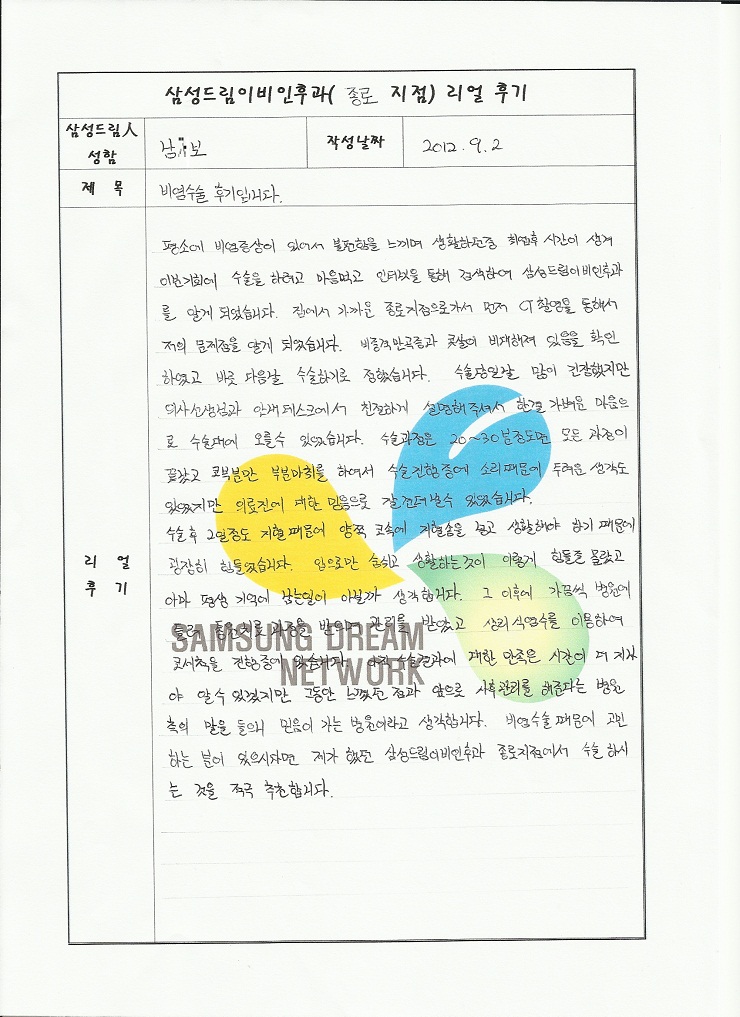 삼성드림이비인후과( 종로 지점) 리얼 후기
삼성드림人 성함
남 보
작성날짜
2012. 9. 2
제 목
비염수술 후기입니다.
리 얼 후 기
평소에 비염증상이 있어서 불편함을 느끼며 생활하던중 최연후 시간이 생겨
이번기회에 수술을 하려고 마음먹고 인터넷을 통해 검색하여 삼성드림이비인후과
를 알게 되었습니다. 집에서 가까운 종로지점으로가서 먼저 CT촬영을 통해서
저의 문제점을 알게 되었습니다. 비중격만곡증과 콧살이 비대해져 있음을 확인
하였고 바로 다음날 수술하기로 정했습니다. 수술당일날 많이 긴장했지만
의사선생님과 안내데스크에서 친절하게 설명해주셔서 한결 가벼운 마음으
로 수술대에 오를수 있었습니다. 수술과정은 20~30분정도면 모든 과정이
끝났고 코부분만 부분마취를 하여서 수술진행중에 소리때문에 두려운 생각도
있었지만 의료진에 대한 믿음으로 잘 견뎌낼수 있었습니다.
수술후 2일정도 지혈때문에 양쪽 코속에 지혈솜을 넣고 생활해야 하기 때문에
굉장히 힘들었습니다. 입으로만 숨쉬고 생활하는것이 이렇게 힘들줄 몰랐고
아마 평생 기억에 남는일이 아닐까 생각합니다. 그 이후에 가끔씩 병원에
들려 통원치료 과정을 받으며 관리를 받았고 생리식염수를 이용하여
코세척을 진행중에 있습니다. 아직 수술결과에 대한 만족은 시간이 더 지나
야 알수 있겠지만 그동안 느꼈던 점과 앞으로 사후관리를 해준다는 병원
측의 말을 들으니 믿음이 가는 병원이라고 생각합니다. 비염수술 때문에 고민
하는 분이 있으시다면 제가 했던 삼성드림이비인후과 종로지점에서 수술 하시
는 것을 적극 추천합니다.
SAMSUNG DREAM
NETWORK